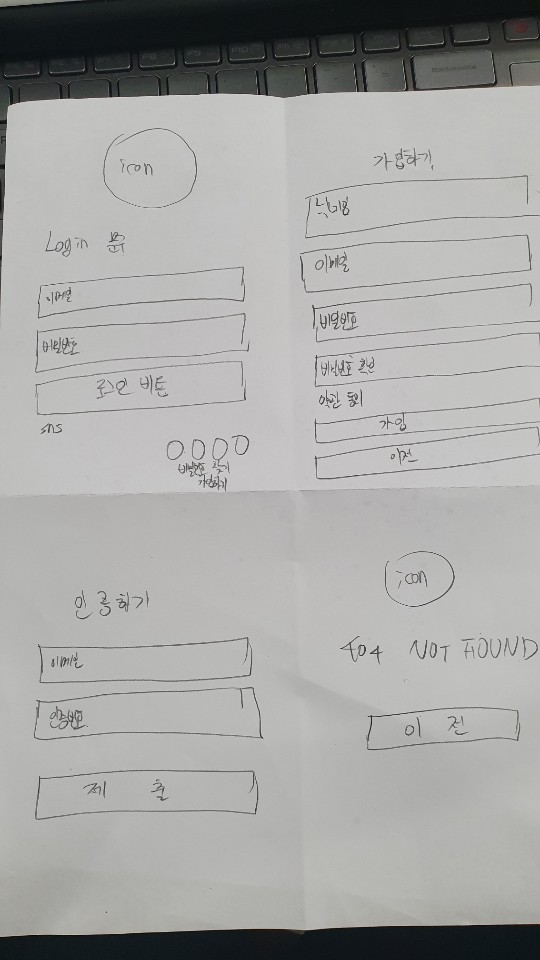 icon
Login 폼
이메일
비밀번호
로그인 버튼
sns
비밀번호 찾기
가입하기
가입하기
닉네임
이메일
비밀번호
비밀번호 확인
약관 동의
가입
이전
인증하기
이메일
인증번호
제 출
icon
404 NOT FOUND
이 전